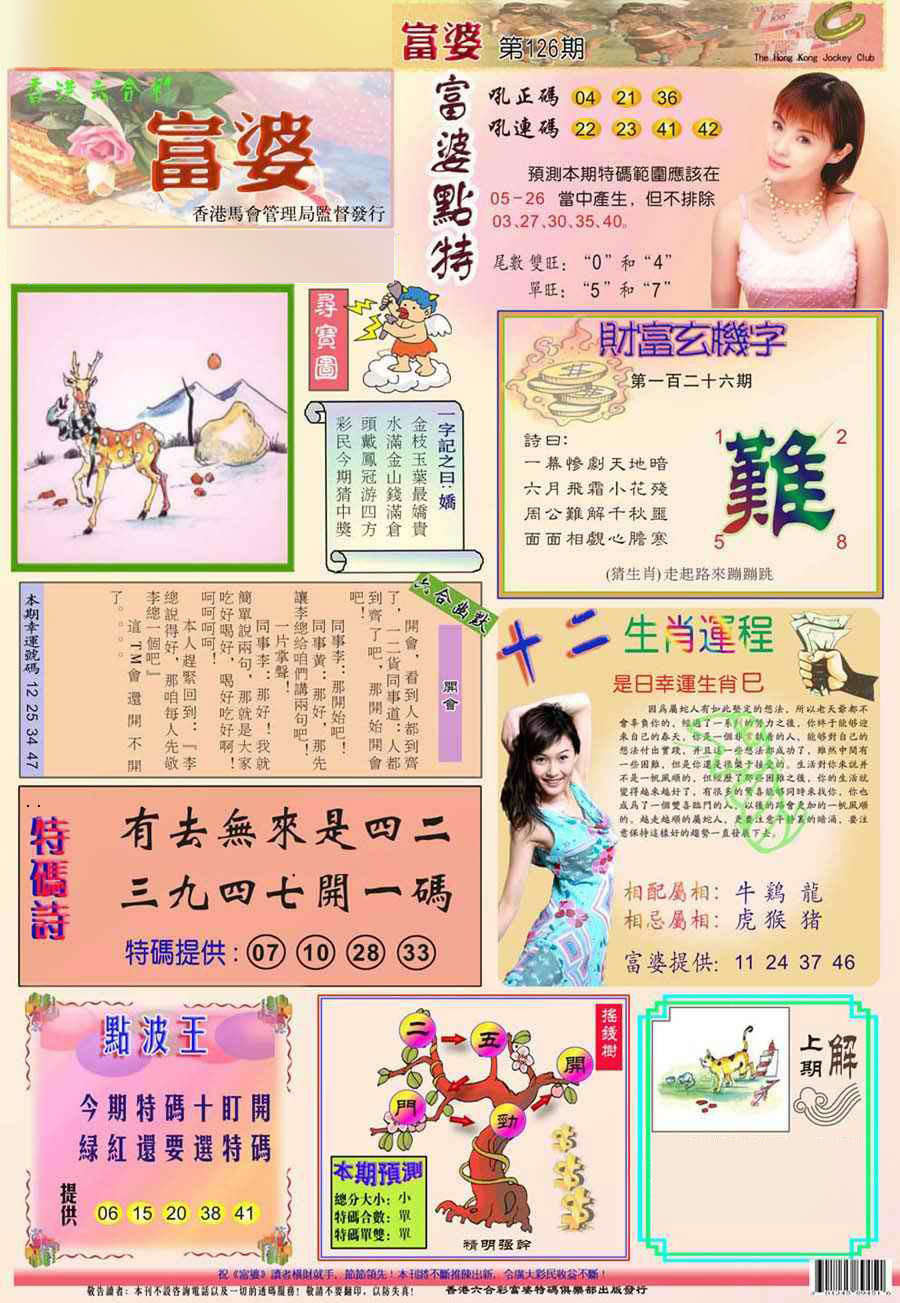 富婆 第126期
The Hong Kong Jockey Club
香港六合彩
富婆
香港馬會管理局監督發行
富婆點特
吼正碼 04 21 36
吼連碼 22 23 41 42
預測本期特碼範圍應該在
05-26 當中產生，但不排除
03、27、30、35、40。
尾數雙旺：“0”和“4”
單旺：“5”和“7”
尋寶圖
一字記之曰：嬌
金枝玉葉最嬌貴
水滿金山錢滿倉
頭戴鳳冠游四方
彩民今期猜中獎
財富玄機字
第一百二十六期
詩曰：
一幕慘劇天地暗
六月飛霜小花殘
周公難解千秋噩
面面相覷心膽寒
1 2
難
5 8
(猜生肖)走起路來蹦蹦跳
六合幽默
開會
開會，看到人都到齊
了，一二貨同事道：人都
到齊了吧，那開始開會
吧！
同事李：那開始吧！
同事黄：那好，那先
讓李總给咱們講兩句吧！
一片掌聲！
同事李：那好！我就
簡單說兩句，那就是大家
吃好喝好，喝好吃好啊！
呵呵呵呵！
本人趕緊回到：『李
總說得好，那咱每人先敬
李總一個吧』
這TM會還開不開
了。。。。
本期幸運號碼 12 25 34 47
十二生肖運程
是日幸運生肖巳
因爲屬蛇人有如此堅定的想法，所以老天爺都不
會辜負你的，經過了一系列的努力之後，你终于能够迎
來自己的春天，你是一個非常執着的人，能够對自己的
想法付出實踐，并且這一些想法都成功了，雖然中間有
一些困難，但是你還是很樂于接受的。生活對你來說并
不是一帆風順的，但經歷了那些困難之後，你的生活就
變得越來越好了，有很多的驚喜能够同時來找你，你也
成爲了一個雙喜臨門的人，以後的路會更加的一帆風順
的。越走越順的屬蛇人，更要注意平静裏的暗涌，要注
意保持這樣好的趨勢一直發展下去。
相配屬相：牛 鷄 龍
相忌屬相：虎 猴 猪
富婆提供：11 24 37 46
特碼詩
有去無來是四二
三九四七開一碼
特碼提供：07 10 28 33
點波王
今期特碼十盯開
綠紅還要選特碼
提供 06 15 20 38 41
搖錢樹
二 五 開
門 勁
本期預測
總分大小：小
特碼合數：單
特碼單雙：單
精明强幹
上期 解
祝《富婆》讀者橫財就手，節節領先！本刊將不斷推陳出新，令廣大彩民收益不斷！
敬告讀者：本刊不設咨詢電話以及一切的透碼服務！敬請不要翻印，以防失真！ 香港六合彩富婆特碼俱樂部出版發行